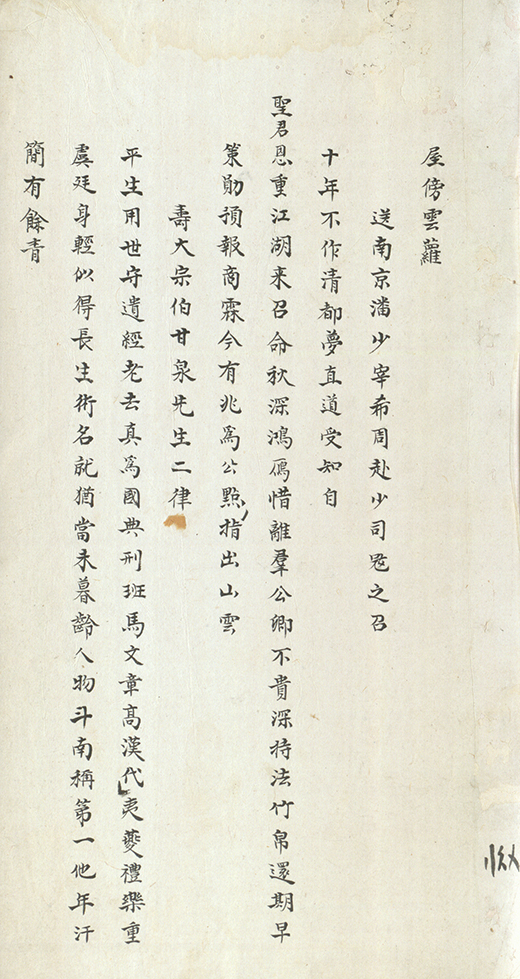 屋傍雲蘿
送南京潘少宰希周赴少司寇之召
十年不作清都夢直道受知自
聖君恩重江湖来召命秋深鴻鴈惜離羣公卿不貴深持法竹帛還期早
策勛預報商霖今有兆爲公點指出山雲
壽大宗伯甘泉先生二律
平生用世守遺經老去真爲國典刑班馬文章高漢代夷夔禮樂重
虞廷身輕似得長生術名就猶當未暮齡人物斗南稱第一他年汗
簡有餘青